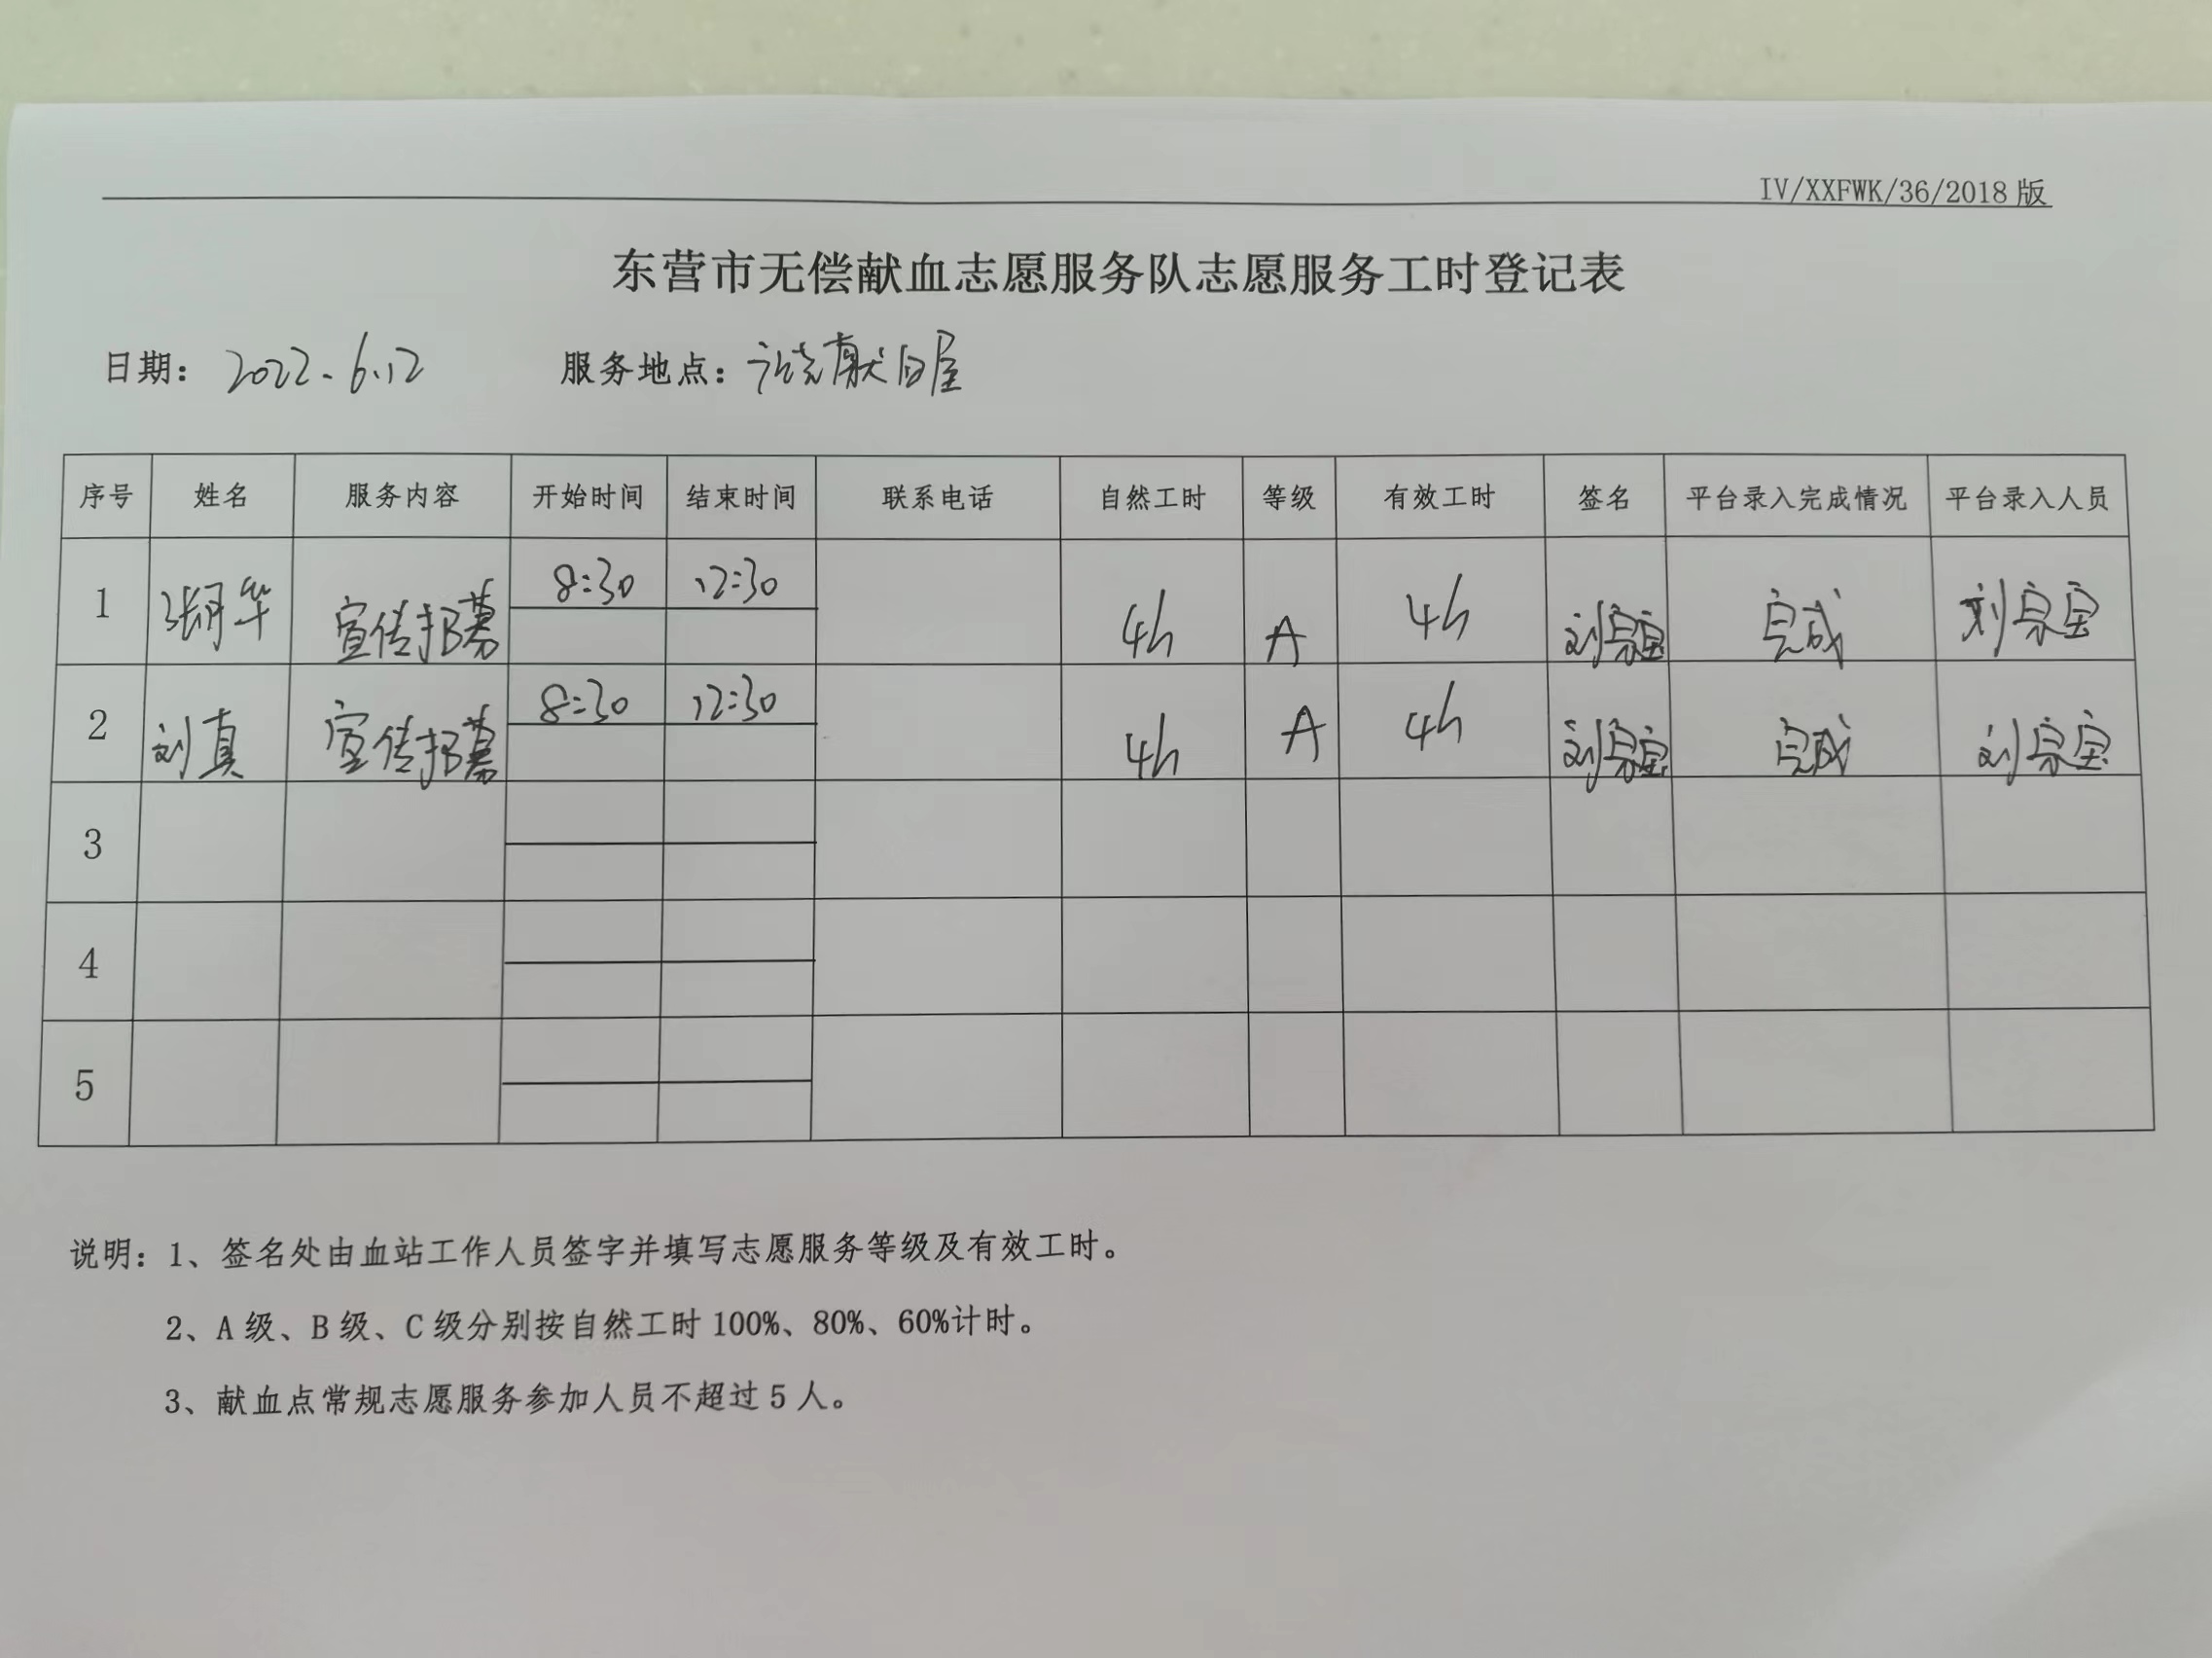 IV/XXFWK/36/2018 版
东营市无偿献血志愿服务队志愿服务工时登记表
日期：2022.6.12 服务地点：广饶献血屋
序号 姓名 服务内容 开始时间 结束时间 联系电话 自然工时 等级 有效工时 签名 平台录入完成情况 平台录入人员
1 张月华 宣传招募 8:30 12:30 4h A 4h 刘宗宝 完成 刘宗宝
2 刘真 宣传招募 8:30 12:30 4h A 4h 刘宗宝 完成 刘宗宝
3
4
5
说明：1、签名处由血站工作人员签字并填写志愿服务等级及有效工时。
2、A 级、B 级、C 级分别按自然工时 100%、80%、60%计时。
3、献血点常规志愿服务参加人员不超过 5 人。